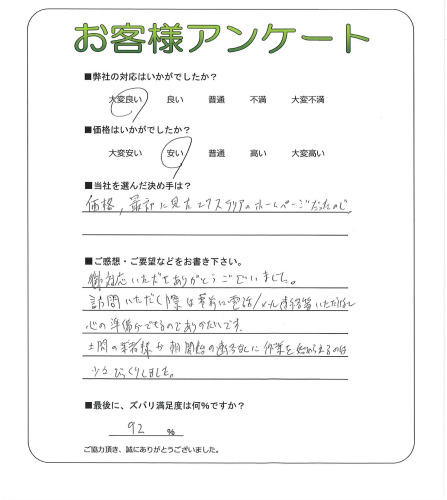 お客様アンケート
■弊社の対応はいかがでしたか?
大変良い 良い 普通 不満 大変不満
■価格はいかがでしたか?
大変安い 安い 普通 高い 大変高い
■当社を選んだ決め手は?
価格, 最初に見たエクステリアのホームページだったので
■ご感想・ご要望などをお書き下さい。
御対応いただきありがとうございました。
訪問いただく際は事前に電話/メール連絡等いただければ
心の準備ができるのでありがたいです。
土間の業者様が朝開始の連絡なしに作業を始められるのは
少々びっくりしました。
■最後に、ズバリ満足度は何%ですか?
92 %
ご協力頂き、誠にありがとうございました。